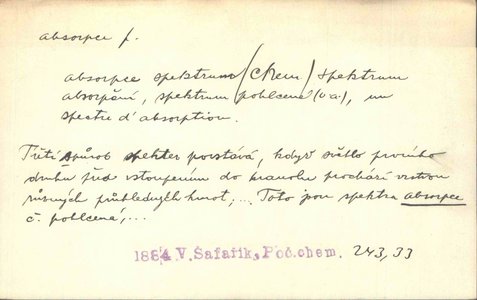 absorpce f.
absorpce spektrum (chem) spektrum
absorpční, spektrum pohlcené (v a.), un
spectre d'absorption.
Třetí způsob spekter povstává, když světlo prvního
druhu před vstoupením do hranolu prochází vrstvou
různých průhledných hmot, ... Toto jsou spektra absorpce
č. pohlcená, ...
1884 V. Šafařík, Poč. chem. 243, 33